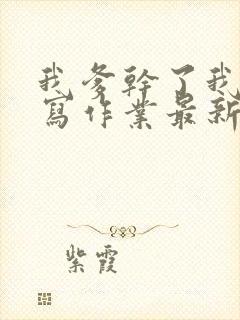 我爹幹了我
寫作業最新
紫霞